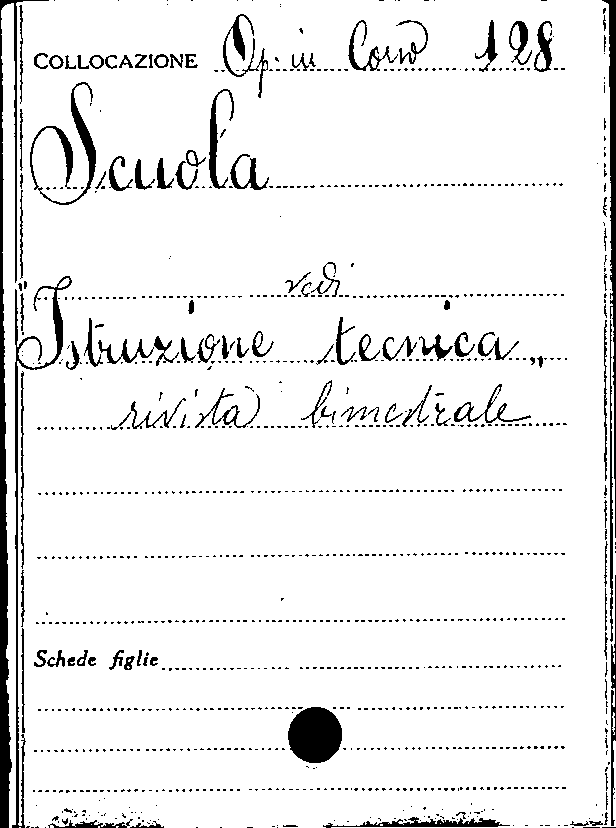 COLLOCAZIONE Op. in Corso 128
Scuola
vedi
"Istruzione tecnica„
rivista bimestrale
Schede figlie